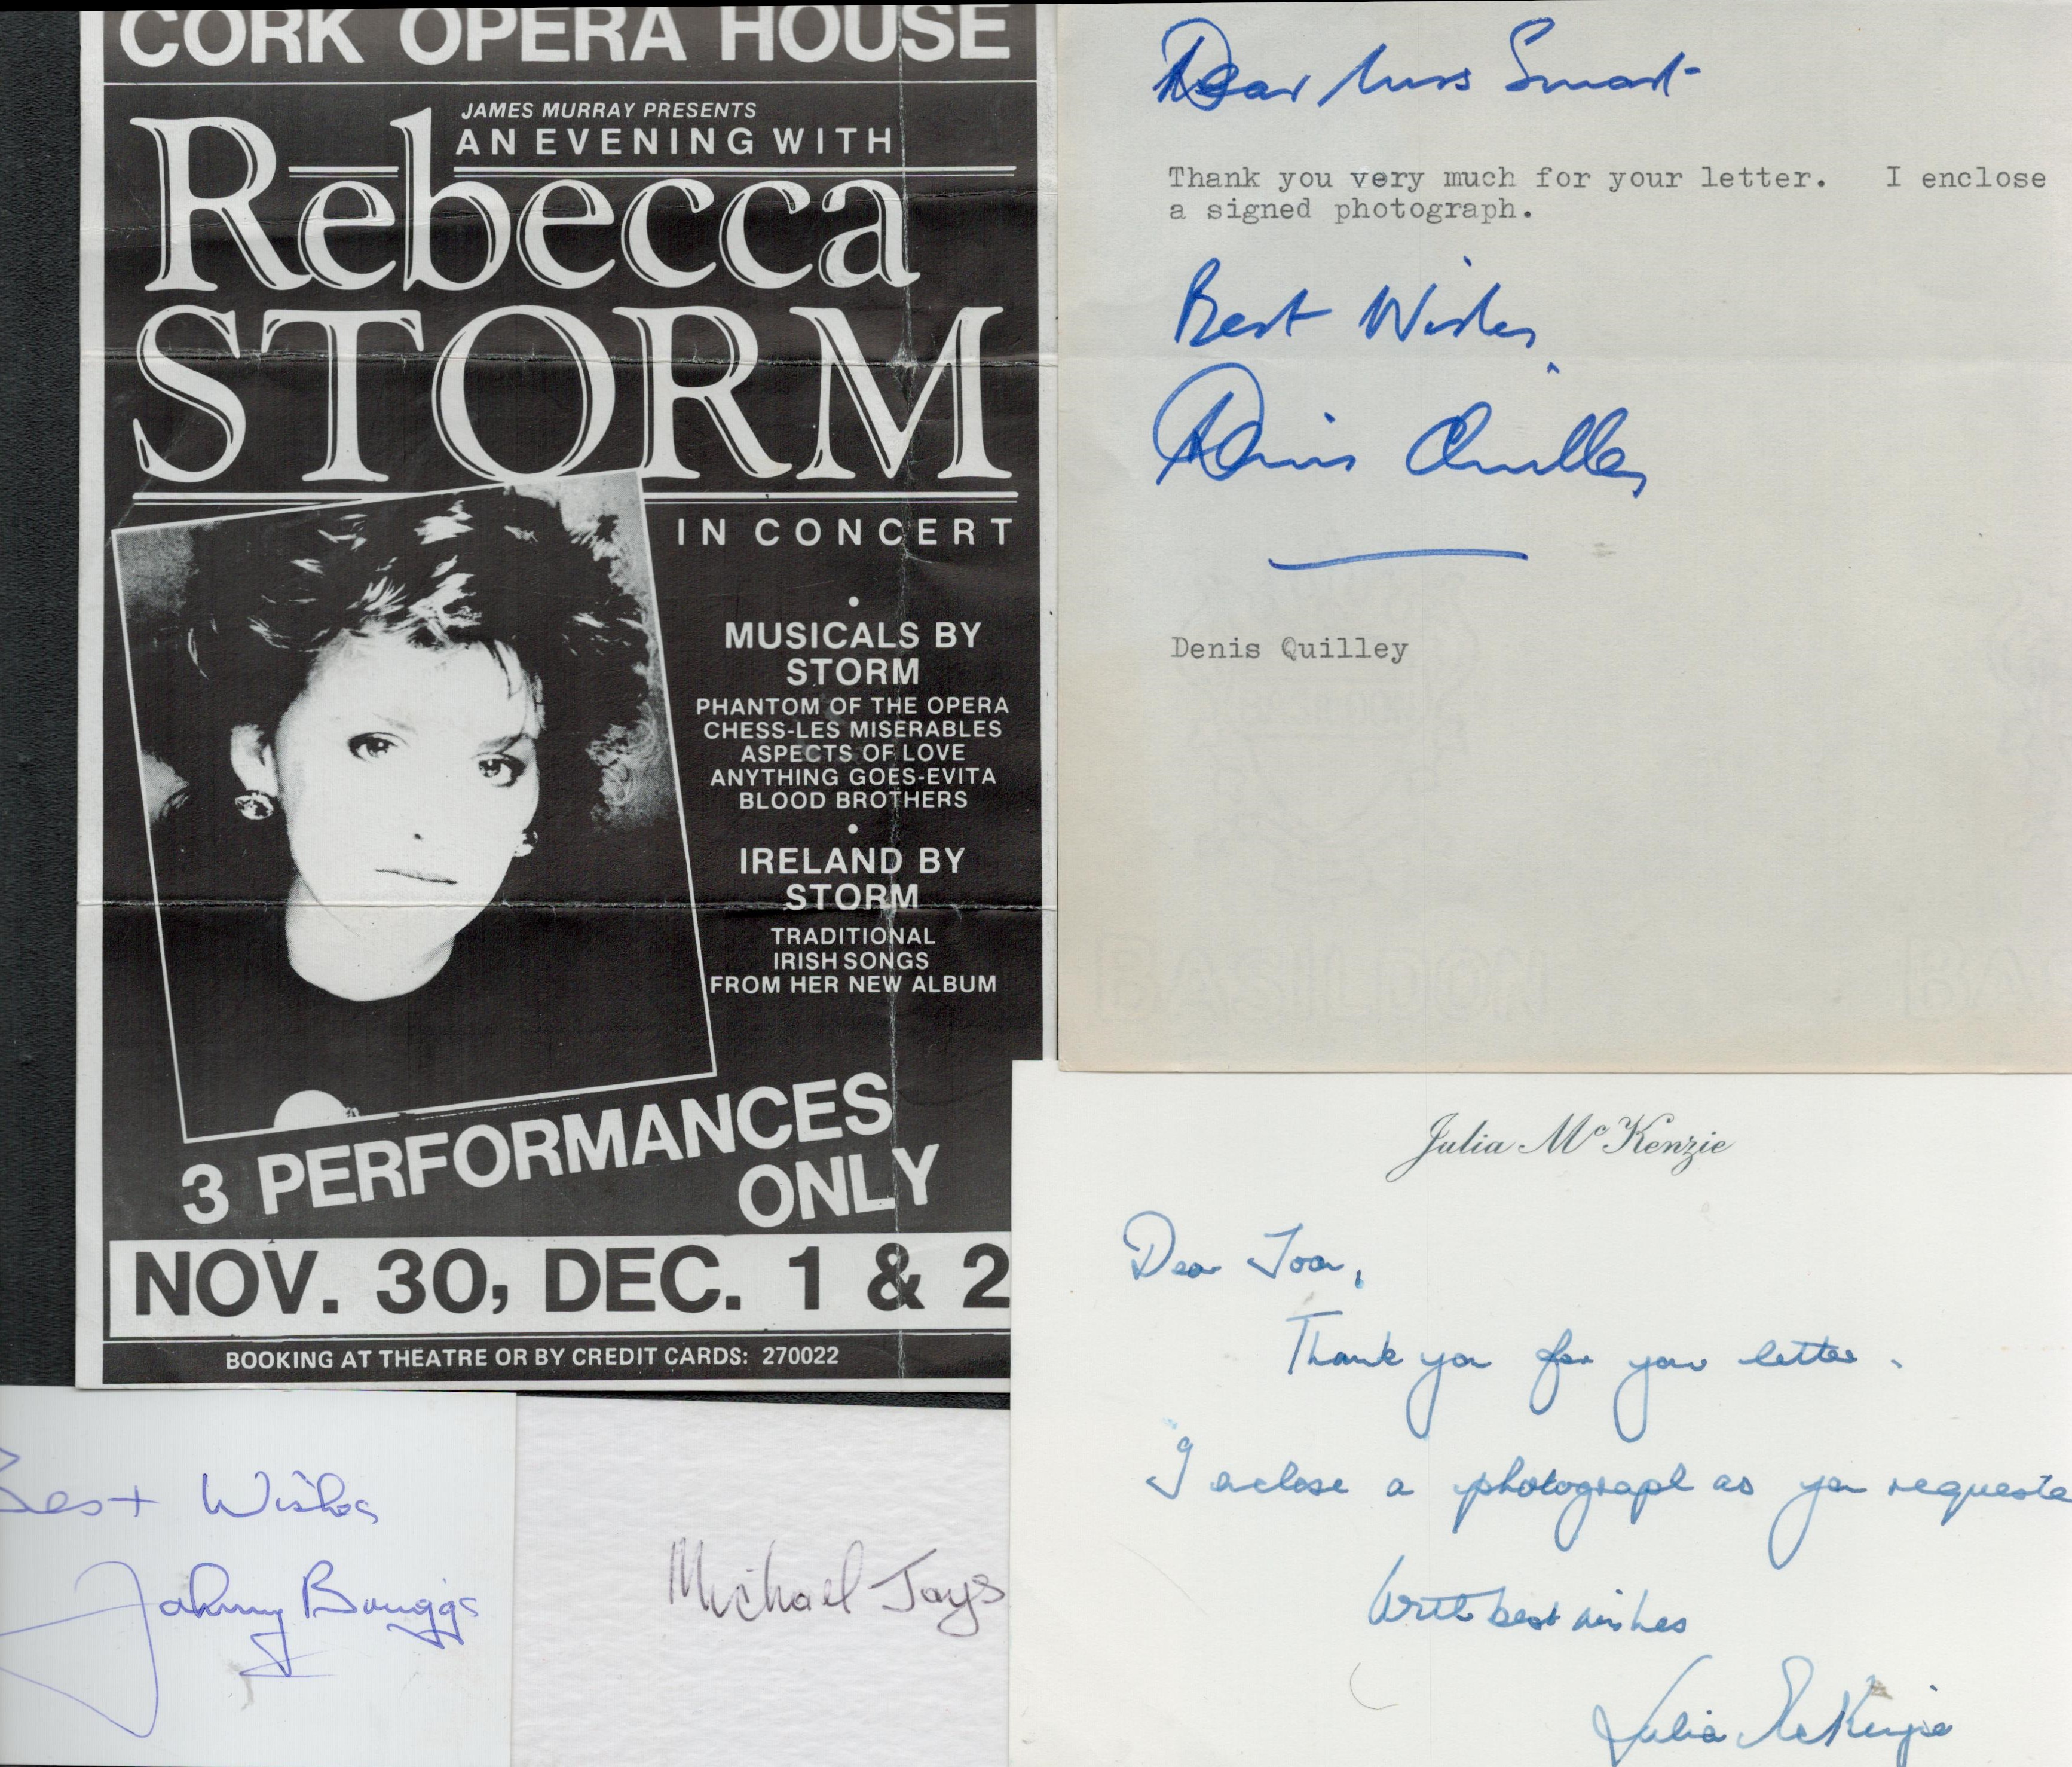 CORK OPERA HOUSE
JAMES MURRAY PRESENTS
AN EVENING WITH
Rebecca
STORM
IN CONCERT
MUSICALS BY
STORM
PHANTOM OF THE OPERA
CHESS-LES MISERABLES
ASPECTS OF LOVE
ANYTHING GOES-EVITA
BLOOD BROTHERS
IRELAND BY
STORM
TRADITIONAL
IRISH SONGS
FROM HER NEW ALBUM
3 PERFORMANCES
ONLY
NOV. 30, DEC. 1 & 2
BOOKING AT THEATRE OR BY CREDIT CARDS: 270022
Dear Miss Smart
Thank you very much for your letter. I enclose
a signed photograph.
Best Wishes,
Denis Quilley
Denis Quilley
BASILDON
Julia McKenzie
Dear Joan,
Thank you for your letter.
I enclose a photograph as you requeste
With best wishes
Julia McKenzie
Best Wishes
Johnny Briggs
Michael Jays